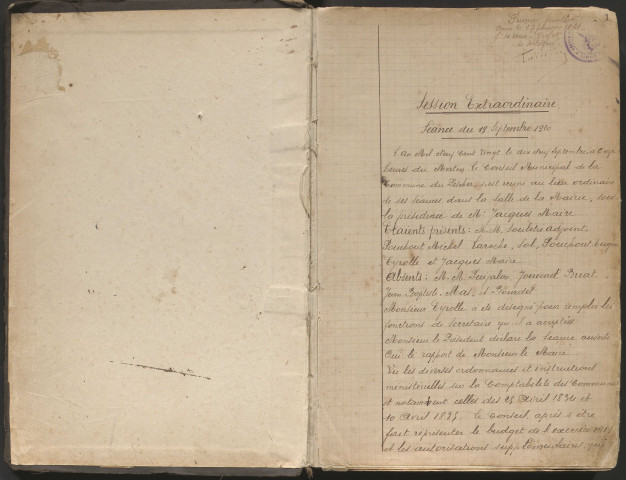 Session Extraordinaire
Séance du 19 Septembre 1920
L'an Mil neuf cent vingt le dix neuf Septembre à onze
heures du Matin le Conseil Municipal de la
Commune du s'est reuni au lieu ordinaire
de ses seances dans la Salle de la Mairie, sous
la présidence de Mr Jacques Maire
Etaient présents: M.M. adjoint
Pouchout Michel Laroche, Sol, Pouchout Eugene
Eyrolle et Jacques Maire
Absents: M.M. Jouvend Briat
Jean Baptiste Mas et Bourdet
Monsieur Eyrolle a été désigné pour remplir les
fonctions de secretaire qu'il a acceptées
Monsieur le Président declare la Seance ouverte
Oui le rapport de Monsieur le Maire
Vu les diverses ordonnances et instructions
ministerielles sur la Comptabilité des Communes
et notamment celles des 23 Avril 1834 et
10 Avril 1835 le Conseil, après s'être
fait représenter le budget de l'exercice
et les autorisations supplémentaires qui